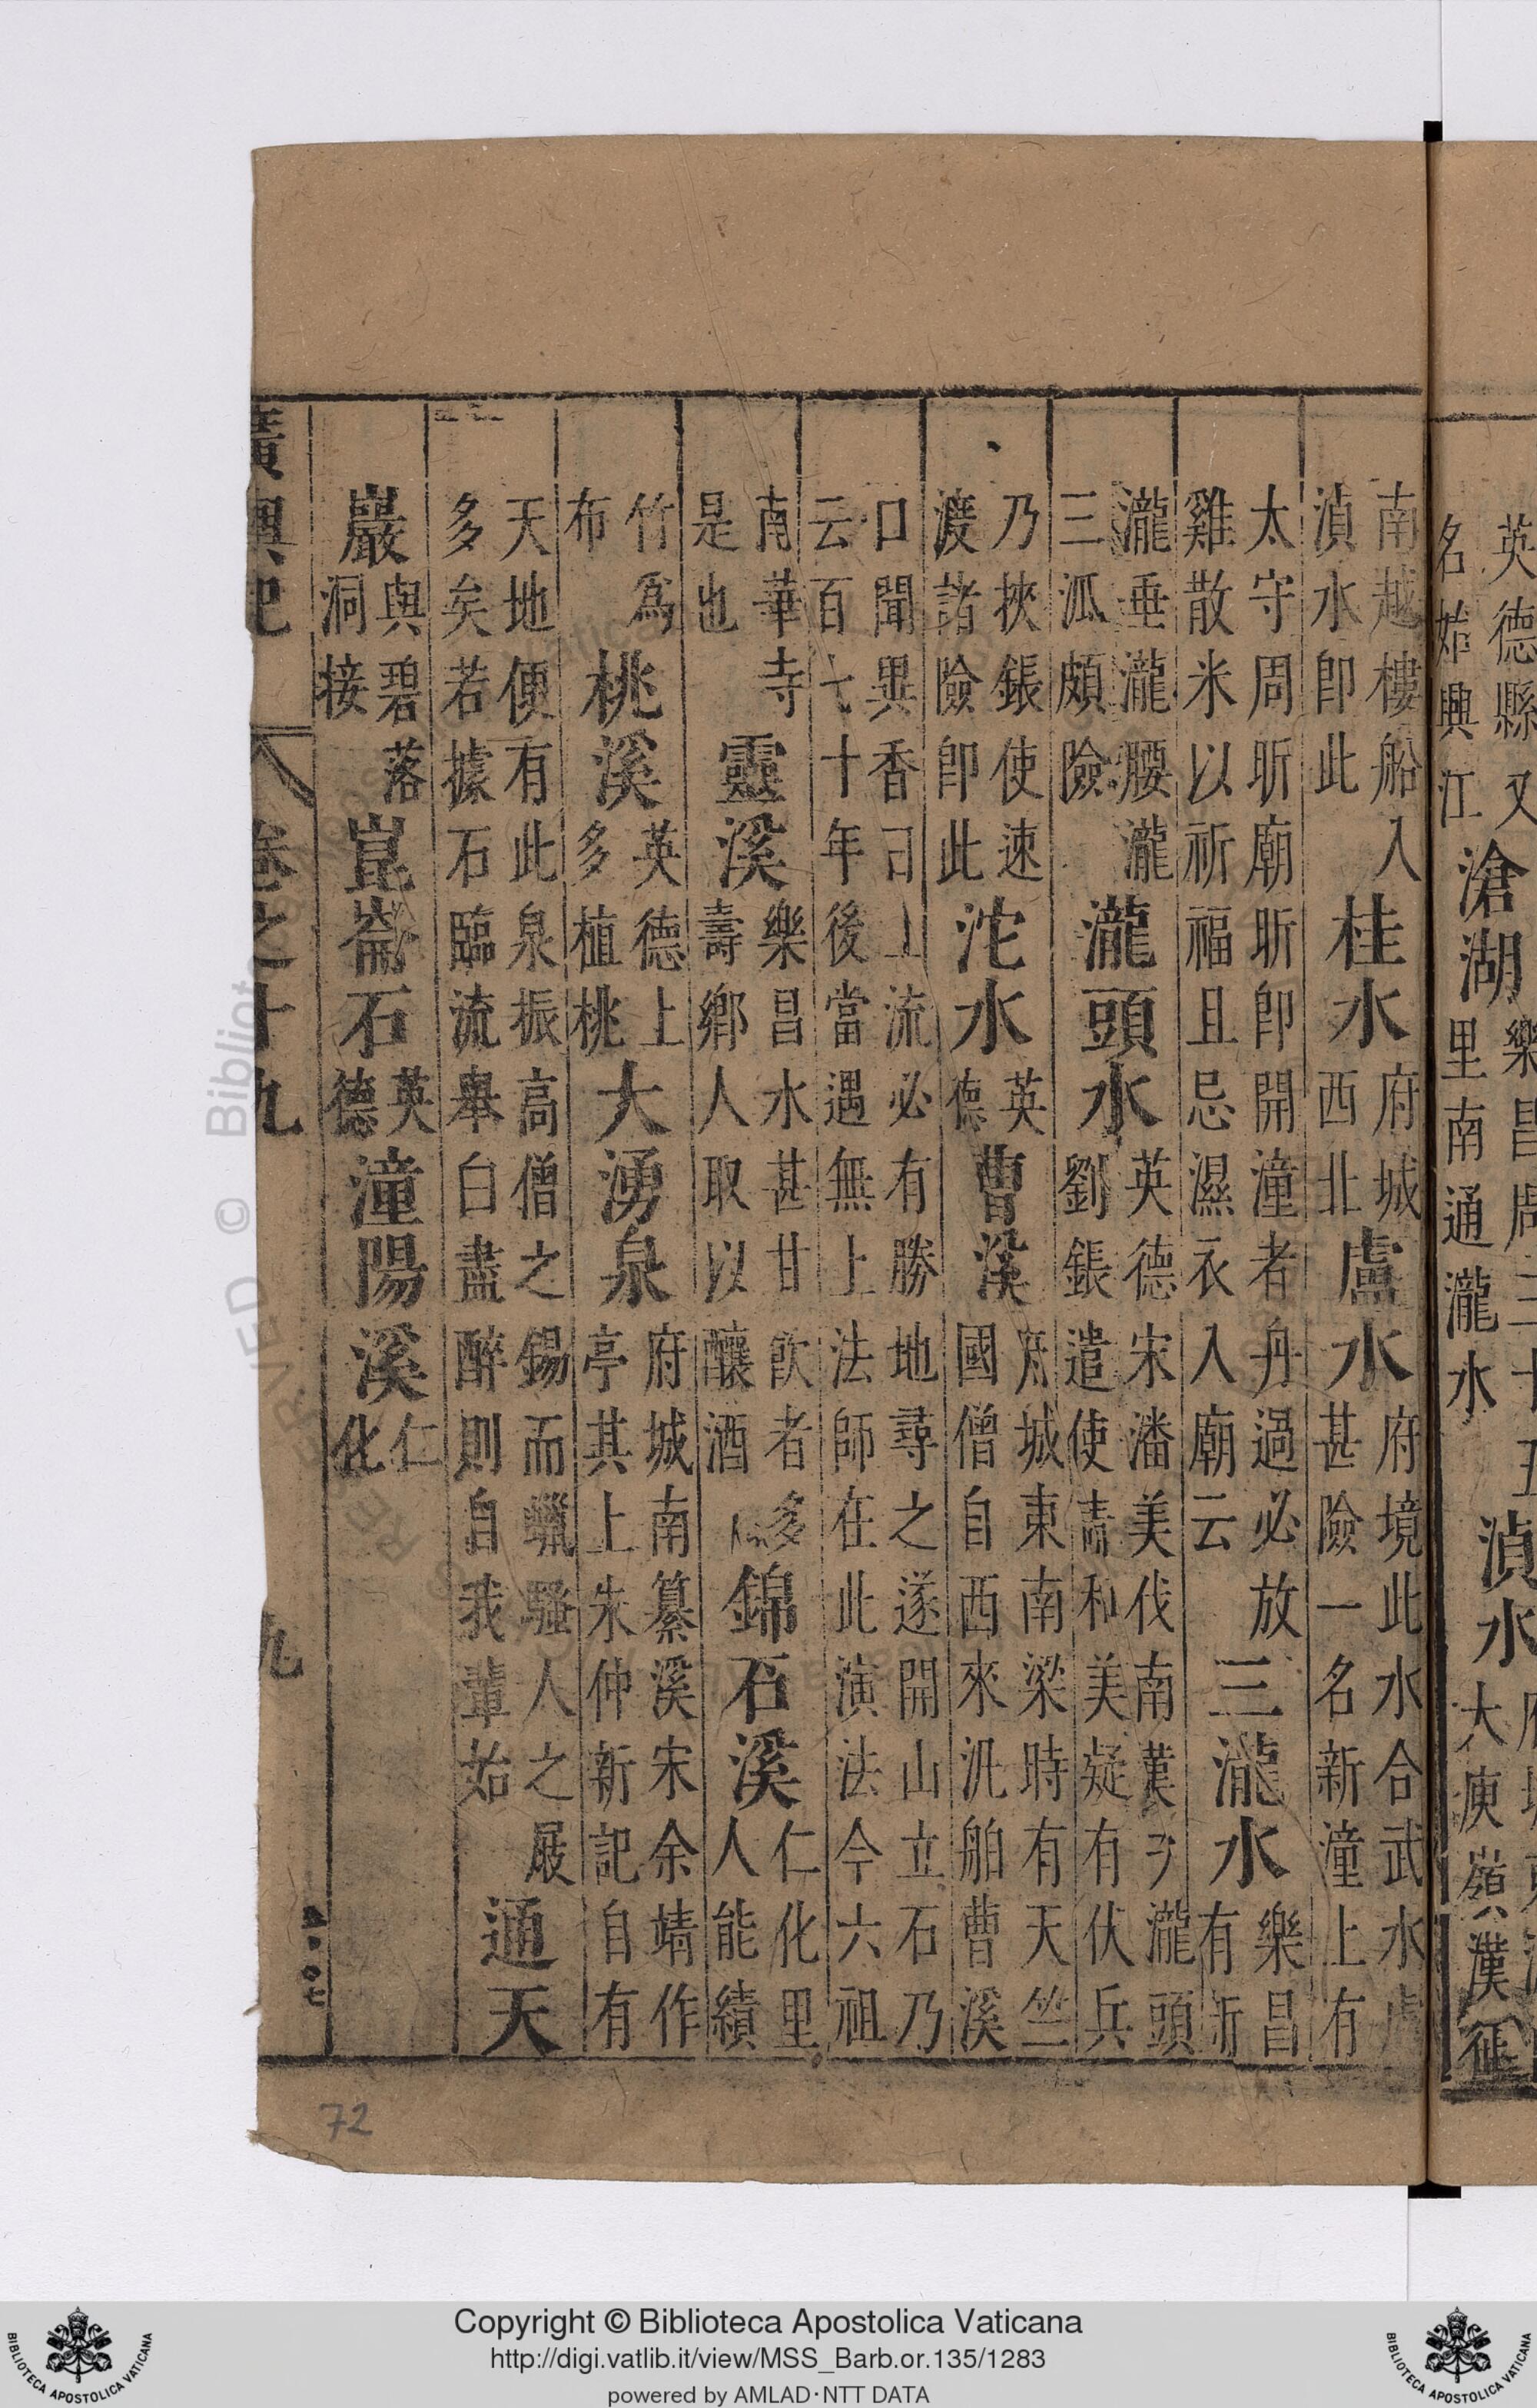 英德縣又
名始興江
滄湖
樂昌周三十五
里南通瀧水
湞水
大庾嶺漢征
南越樓船入
湞水即此
桂水
府城
西北
盧水
府境此水合武水
甚險一名新潼上有
太守周昕廟昕即開潼者舟過必放
雞散米以祈福且忌濕衣入廟云
三瀧水
樂昌
有新
瀧垂瀧腰瀧
三泒頗險
瀧頭水
英德宋潘美伐南漢于瀧頭
劉鋹遣使請和美疑有伏兵
乃挾鋹使速
渡諸險即此
沱水
英
德
曹溪
府城東南梁時有天竺
國僧自西來汎舶曹溪
口聞異香曰上流必有勝地尋之遂開山立石乃
云百七十年後當遇無上法師在此演法今六祖
南華寺
是也
靈溪
樂昌水甚甘飲者多
壽鄉人取以釀酒
錦石溪
仁化里
人能績
竹為
布
桃溪
英德上
多植桃
大湧泉
府城南纂溪宋余靖作
亭其上朱仲新記自有
天地便有此泉振高僧之錫而蠟騷人之屐
多矣若據石臨流舉白盡醉則自我輩始
通天
巖
與碧落
洞接
崑崙石
英
德
潼陽溪
仁
化
廣輿記
卷之十九
九
72
© Biblioteca
Copyright © Biblioteca Apostolica Vaticana
http://digi.vatlib.it/view/MSS_Barb.or.135/1283
powered by AMLAD·NTT DATA
BIBLIOTECA APOSTOLICA VATICANA
BIBLIOTECA APOSTOLICA VATICANA